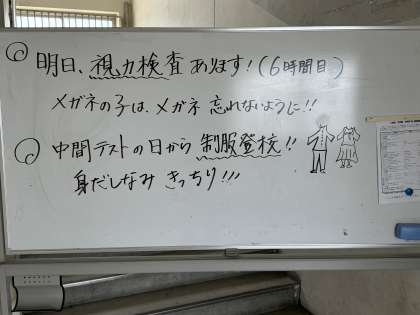 明日、視力検査あります!(6時間目)
メガネの子は、メガネ忘れないように!!
中間テストの日から制服登校!!
身だしなみきっちり!!!